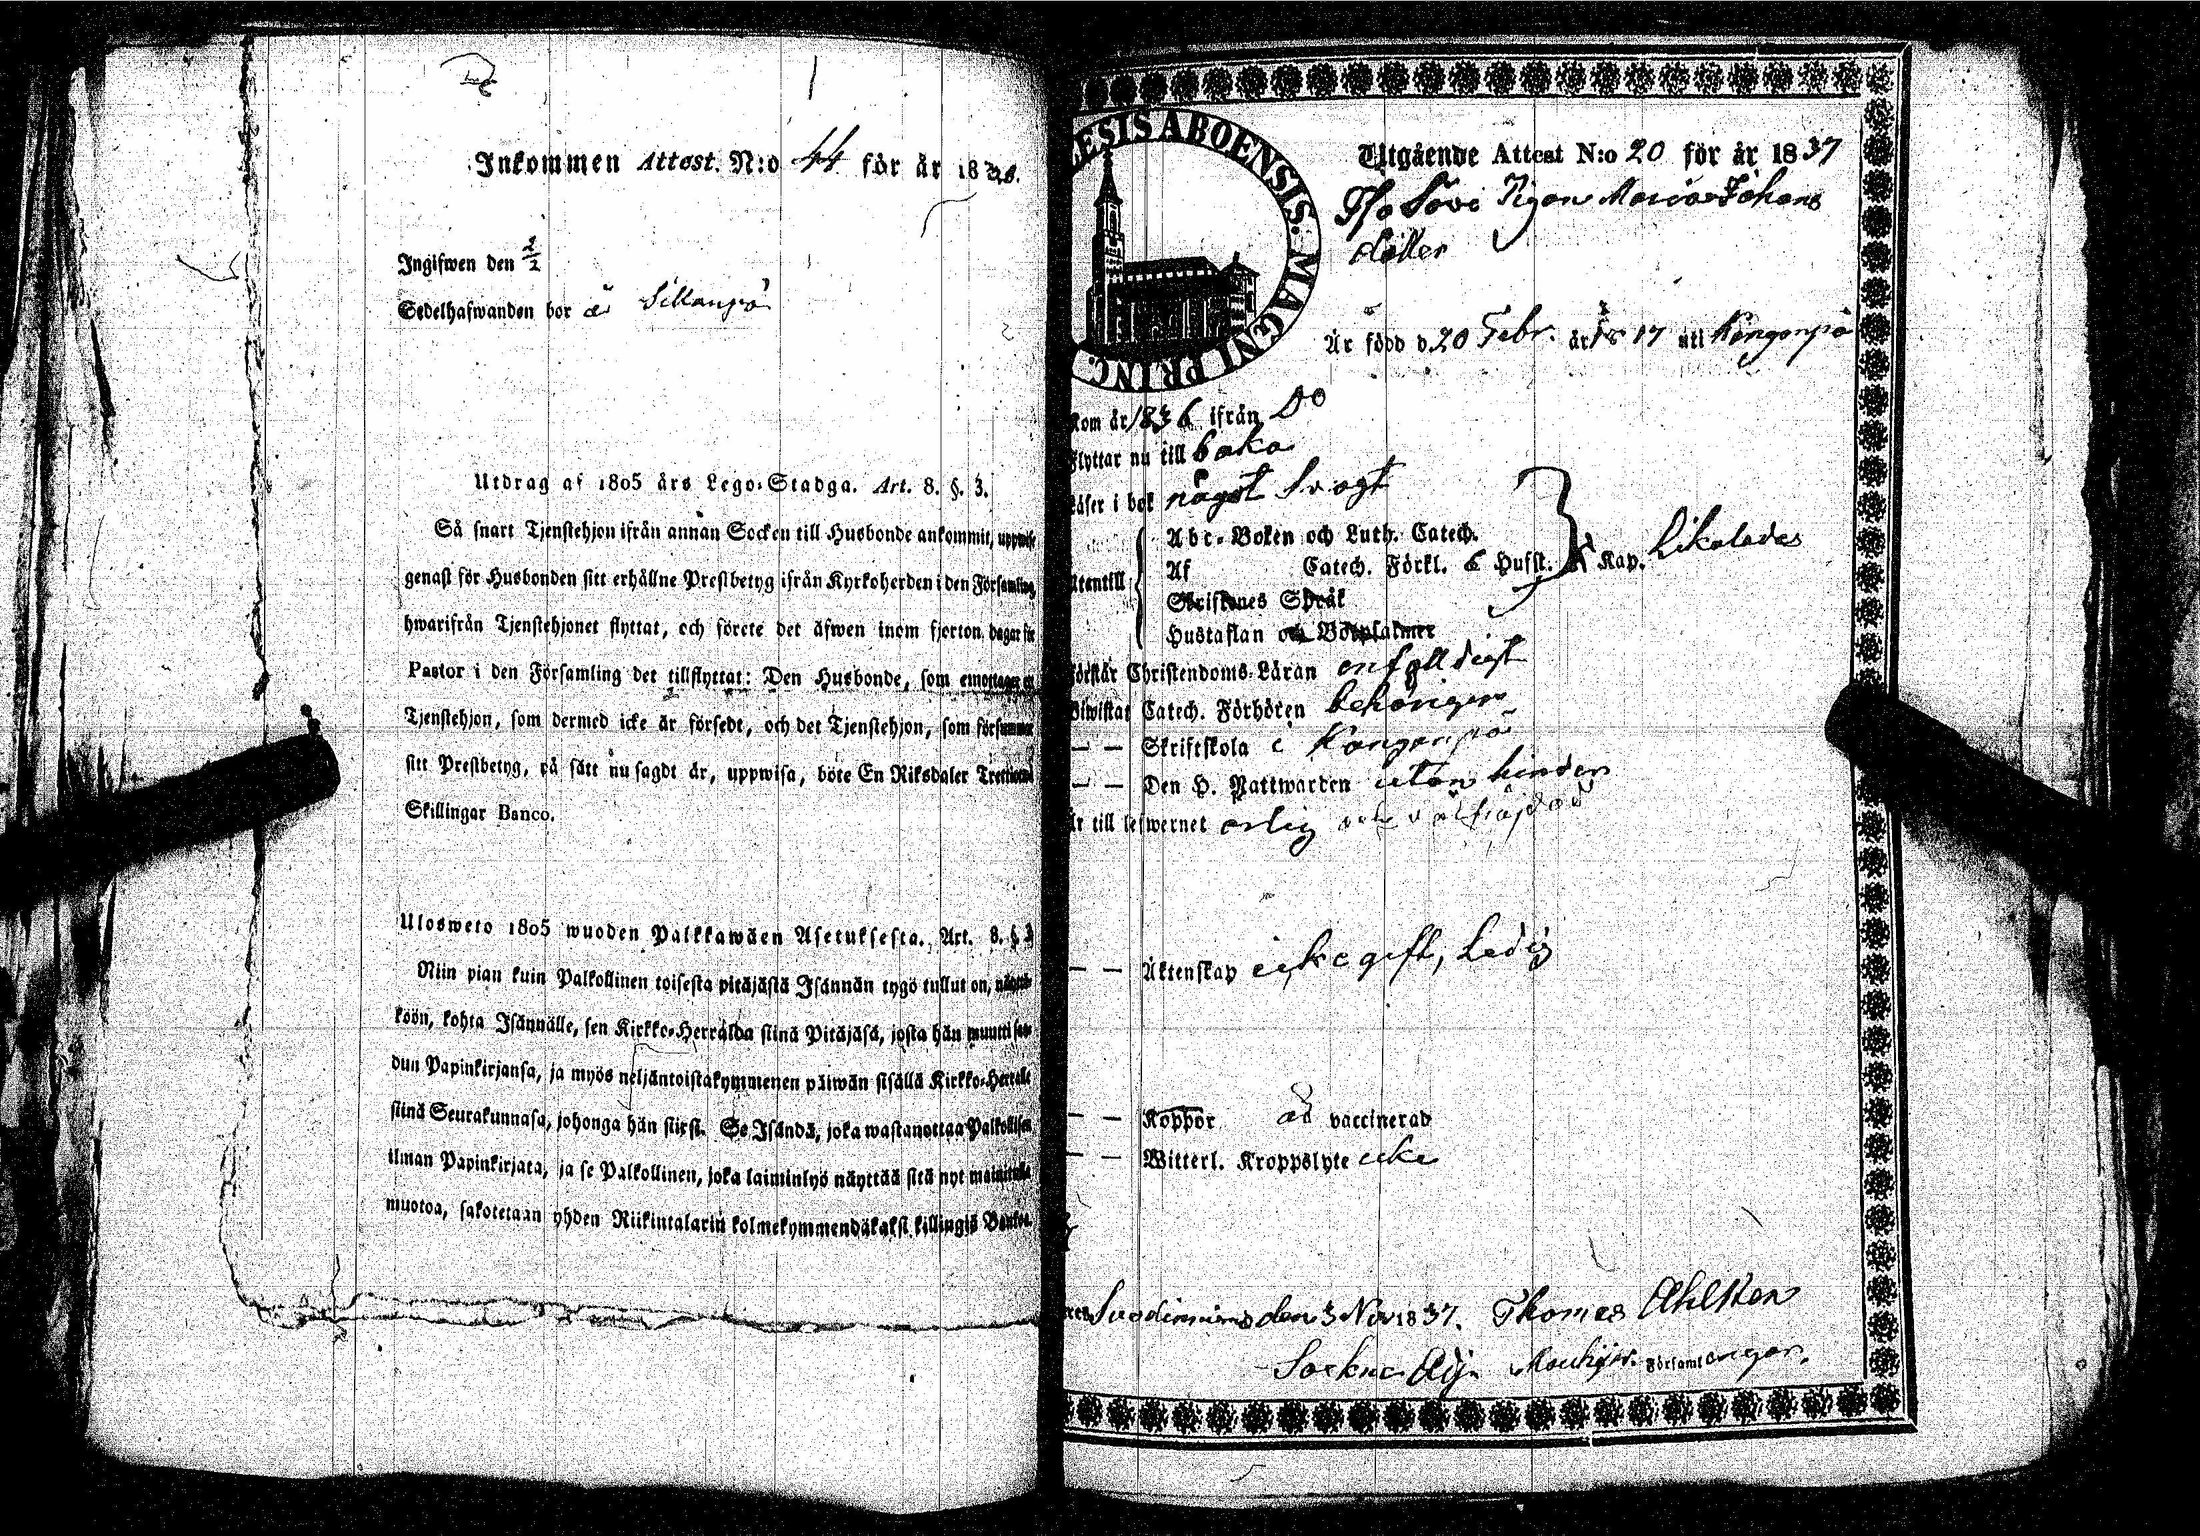 Inkommen Attest. N:o 44 för år 18
Ingifwen den 2/2
Sedelhafwanden bor å Sillanpä
Utdrag af 1805 års Lego-Stadga. Art. 8. §. 3.
Så snart Tjenstehjon ifrån annan Socken till Husbonde ankommit, uppwise
genast för Husbonden sitt erhållne Prestbetyg ifrån Kyrkoherden i den Församling
hwarifrån Tjenstehjonet flyttat, och förete det äfwen inom fjorton dagar för
Pastor i den Församling det tillflyttat: Den Husbonde, som emottager et
Tjenstehjon, som dermed icke är försedt, och det Tjenstehjon, som försummar
sitt Prestbetyg, på sätt nu sagdt är, uppwisa, böte En Riksdaler Trettiotwå
Skillingar Banco.
Ulosweto 1805 wuoden Palkkawäen Asetuksesta. Art. 8. §. 3
Niin pian kuin Palkollinen toisesta pitäjästä Isännän tygö tullut on, näyttä-
köön, kohta Isännälle, sen Kirkko-Herralda siinä Pitäjäsä, josta hän muutti saa-
dun Papinkirjansa, ja myös neljäntoistakymmenen päiwän sisällä Kirkko-Herralle
siinä Seurakunnasa, johonga hän siirsi. Se Isändä, joka wastanottaa Palkollisen
ilman Papinkirjata, ja se Palkollinen, joka laiminlyö näyttää sitä nyt mainitulla
muotoa, sakotetaan yhden Riikintalarin kolmekymmendäkaksi killingiä Bankoa.
ESIS ABOENSIS. MAGNI PRINC.
Utgående Attest N:o 20 för år 1837
Pigan Maria Johans
dotter
Är född d 20 Febr. år 1817 uti Kangonpä
Kom år 1836 ifrån Do
Flyttar nu till baka
Läser i bok något svagt
Abc-Boken och Luth. Catech.
Utantill Af Catech. Förkl. 6 Hufst. Kap.
Skriftenes Språk
Hustaflan och Botpsalmer
Förstår Christendoms-Läran enfalldigt
Biwistat Catech. Förhören behörigen
— — Skriftskola i Kangonpä
— — Den H. Nattwarden utan hinder
Är till lefwernet ärlig och väl
— — Äktenskap icke gift, Ledig
— — Koppor är vaccinerad
— — Witterl. Kroppslyte icke
Suodenniemi den 3 Nov 1837. Thomas Ahlsten
Sockne Adj. Församl